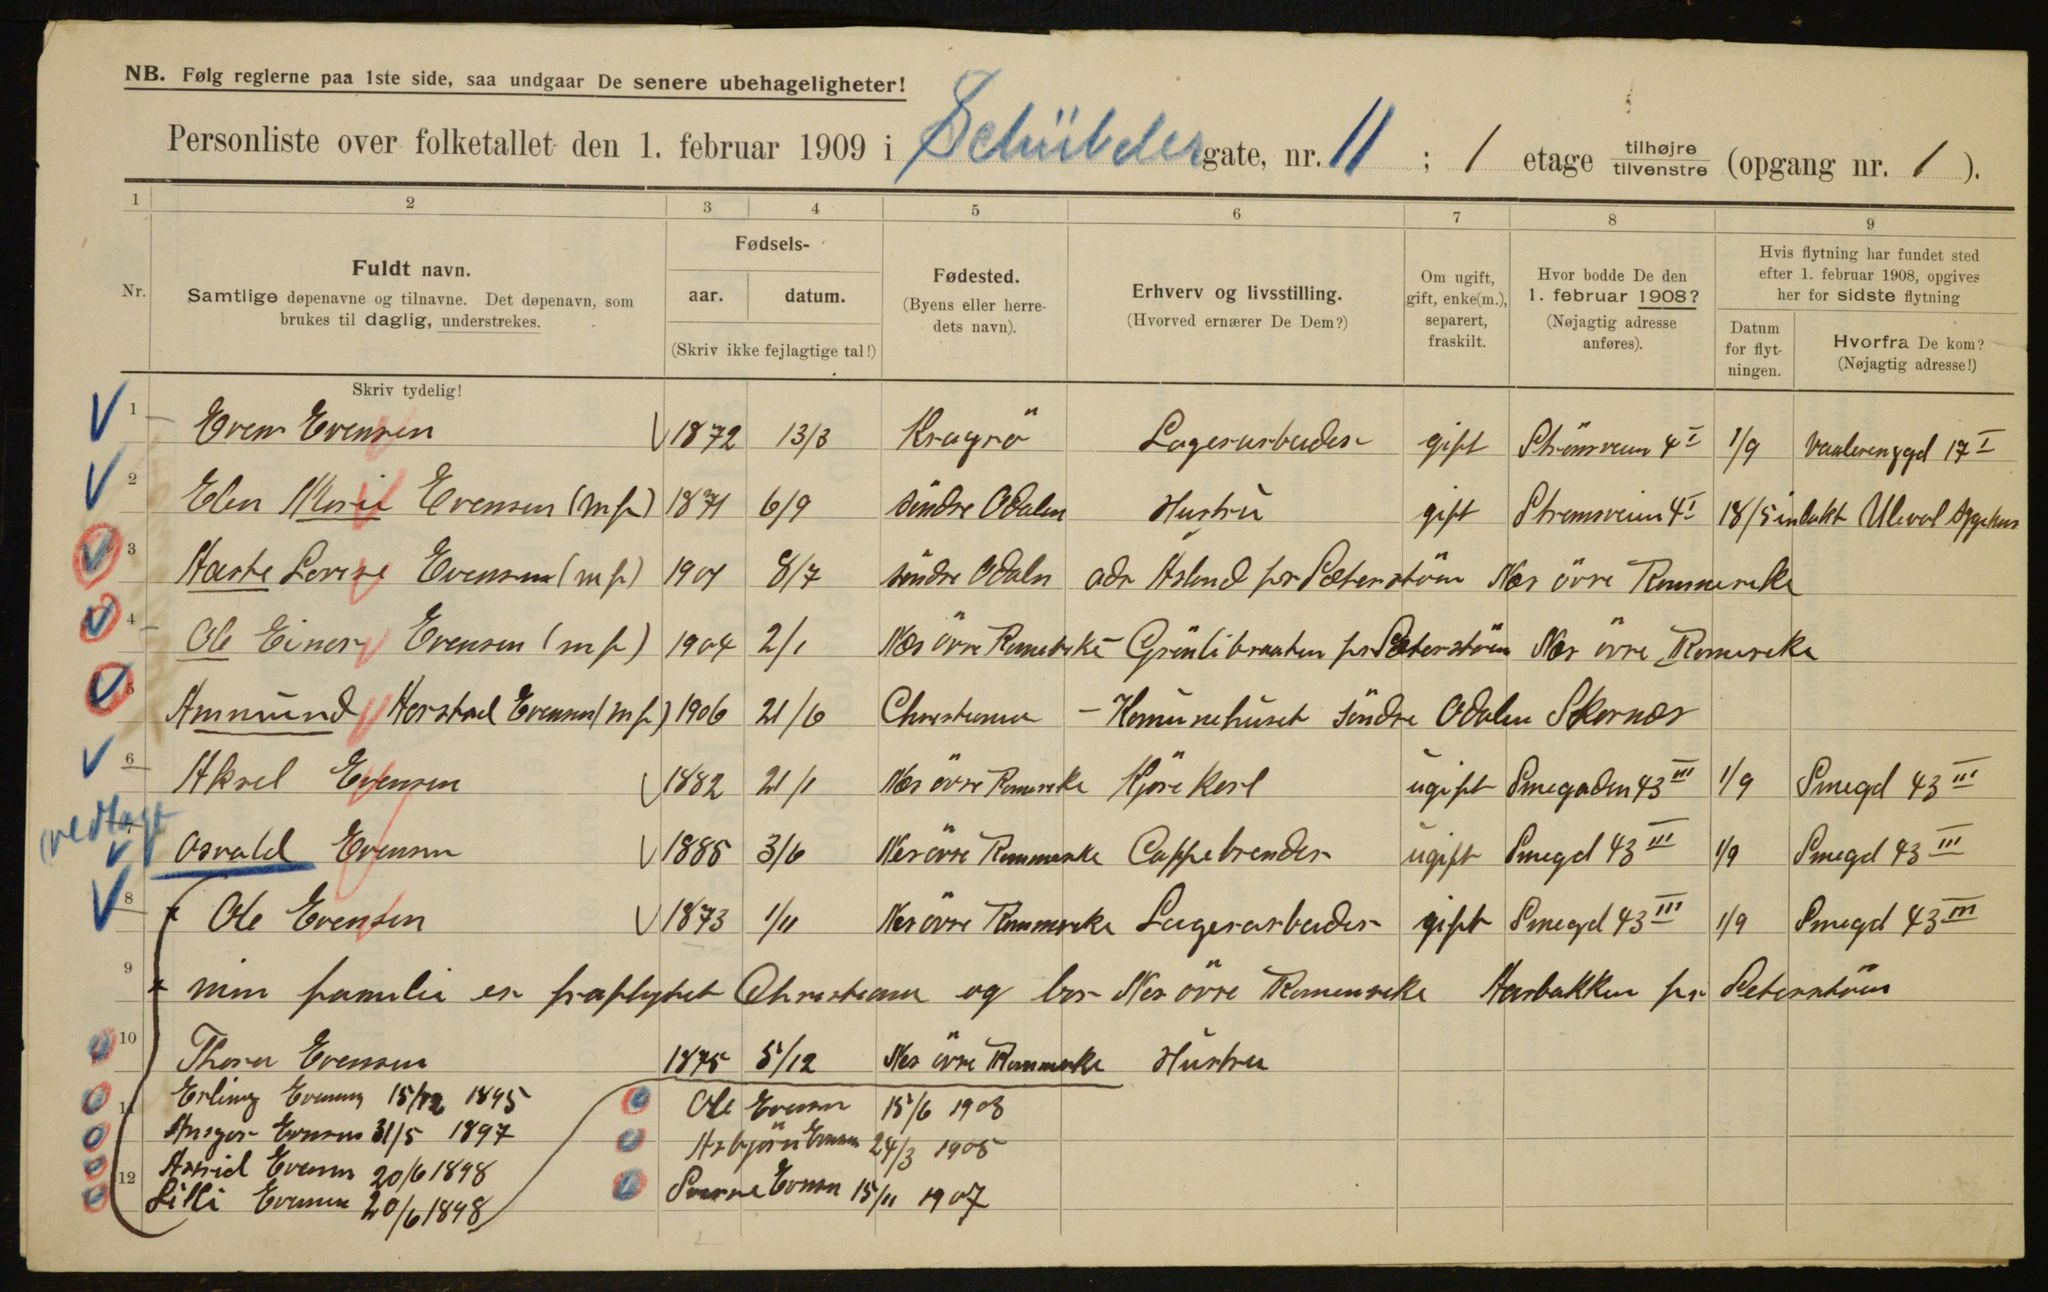 NB. Følg reglerne paa 1ste side, saa undgaar De senere ubehageligheter!
Personliste over folketallet den 1. februar 1909 i Schübelergate, nr. 11 ; 1 etage tilhøjre/tilvenstre (opgang nr. 1 ).
1 2 3 4 5 6 7 8 9
Nr.
Fuldt navn.
Samtlige døpenavne og tilnavne. Det døpenavn, som
brukes til daglig, understrekes.
Fødsels-
aar. datum.
(Skriv ikke fejlagtige tal!)
Fødested.
(Byens eller herre-
dets navn).
Erhverv og livsstilling.
(Hvorved ernærer De Dem?)
Om ugift,
gift, enke(m.),
separert,
fraskilt.
Hvor bodde De den
1. februar 1908?
(Nøjagtig adresse
anføres).
Hvis flytning har fundet sted
efter 1. februar 1908, opgives
her for sidste flytning
Datum
for flyt-
ningen.
Hvorfra De kom?
(Nøjagtig adresse!)
Skriv tydelig!
1 Even Evensen 1872 13/3 Kragrö Lagerarbeider gift Strömsveien 4 I 1/9 Vaalerenggd 17 I
2 Elen Marie Evensen (mf) 1871 6/9 Söndre Odalen Hustru gift Strømsveien 4 I 18/5 indlakt Ulevol
3 Evensen (mf) 1901 8/7 Söndre Odalen adr Asland pr Sæterstöen Nes övre Rommerike
4 Ole Einar Evensen (mf) 1904 2/1 Nes övre Romerike - Grönlibraaten pr Sæterstöen Nes övre Romerike
5 Ammund Harstad Evensen (mf) 1906 21/6 Christiania - Komunehuset Söndre Odalen Skarnæs
6 Aksel Evensen 1882 21/1 Nes övre Romerike Kjörekarl ugift Smegaden 43 III 1/9 Smegd 43 III
vedlagt
7 Osvald Evensen 1885 3/6 Nes övre Rommerike Kaffebrender ugift Smegd 43 III 1/9 Smegd 43 III
8 × Ole Evensen 1873 1/11 Nes övre Rommerike Lagerarbeider gift Smegd 43 III 1/9 Smegd 43 III
9 × min familie er fraflyttet Christiania og bor Nes övre Romerike Harbakken pr Seterstöen
10 Thora Evensen 1875 5/12 Nes övre Rommerike Hustru
11 Erling Evensen 15/12 1895 Ole Evensen 15/6 1903
Ansgar Evensen 31/5 1897 Asbjörn Evensen 24/3 1905
12 Astrid Evensen 20/6 1898 Sverre Evensen 15/11 1907
Lilli Evensen 20/6 1898